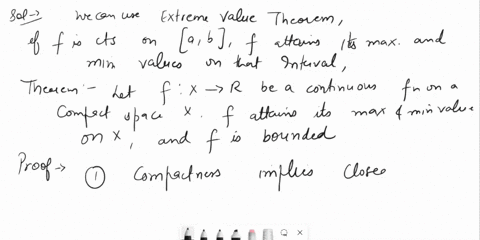 Sol → We can use Extreme Value Theorem,
if f is cts on [a, b], f attains its max. and
min values on that Interval,
Theorem:- Let f : X → R be a continuous fn on a
Compact space X. f attains its max & min value
on X, and f is bounded
Proof → ① Compactness implies Closed